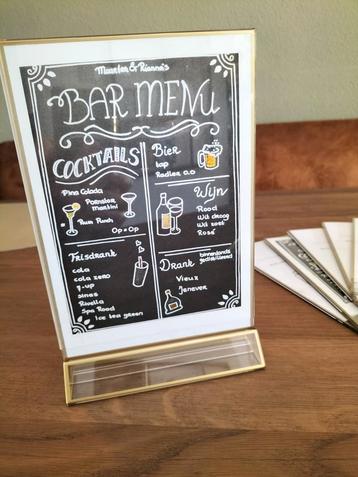 Maarten & Rianne's
BAR MENU
COCKTAILS
Pina Colada
Pornstar
martini
Rum Punch
Op = Op
Frisdrank
cola
cola zero
7-up
sinas
Rivella
Spa Rood
Ice tea green
Bier
tap
Radler 0.0
Wijn
Rood
Wit droog
Wit zoet
Rosé
Drank
binnenlands
gedistilleerd
Vieux
Jenever